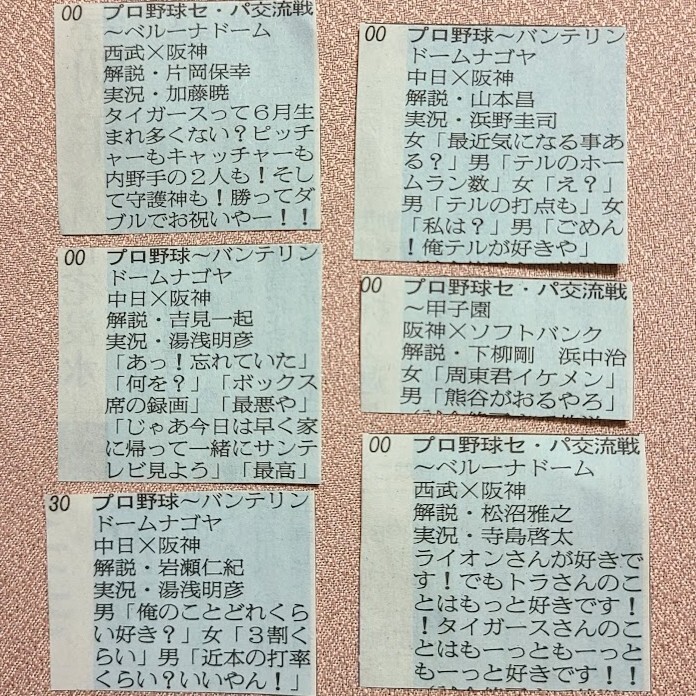 00 プロ野球セ・パ交流戦
～ベルーナドーム
西武×阪神
解説・片岡保幸
実況・加藤暁
タイガースって６月生
まれ多くない？ピッチ
ャーもキャッチャーも
内野手の２人も！そし
て守護神も！勝ってダ
ブルでお祝いやー！！
00 プロ野球～バンテリン
ドームナゴヤ
中日×阪神
解説・吉見一起
実況・湯浅明彦
「あっ！忘れていた」
「何を？」「ボックス
席の録画」「最悪や」
「じゃあ今日は早く家
に帰って一緒にサンテ
レビ見よう」「最高」
30 プロ野球～バンテリン
ドームナゴヤ
中日×阪神
解説・岩瀬仁紀
実況・湯浅明彦
男「俺のことどれくら
い好き？」女「３割く
らい」男「近本の打率
くらい？いいやん！」
00 プロ野球～バンテリン
ドームナゴヤ
中日×阪神
解説・山本昌
実況・浜野圭司
女「最近気になる事あ
る？」男「テルのホー
ムラン数」女「え？」
男「テルの打点も」女
「私は？」男「ごめん
！俺テルが好きや」
00 プロ野球セ・パ交流戦
～甲子園
阪神×ソフトバンク
解説・下柳剛　浜中治
女「周東君イケメン」
男「熊谷がおるやろ」
00 プロ野球セ・パ交流戦
～ベルーナドーム
西武×阪神
解説・松沼雅之
実況・寺島啓太
ライオンさんが好きで
す！でもトラさんのこ
とはもっと好きです！
！タイガースさんのこ
とはもーっともーっと
もーっと好きです！！